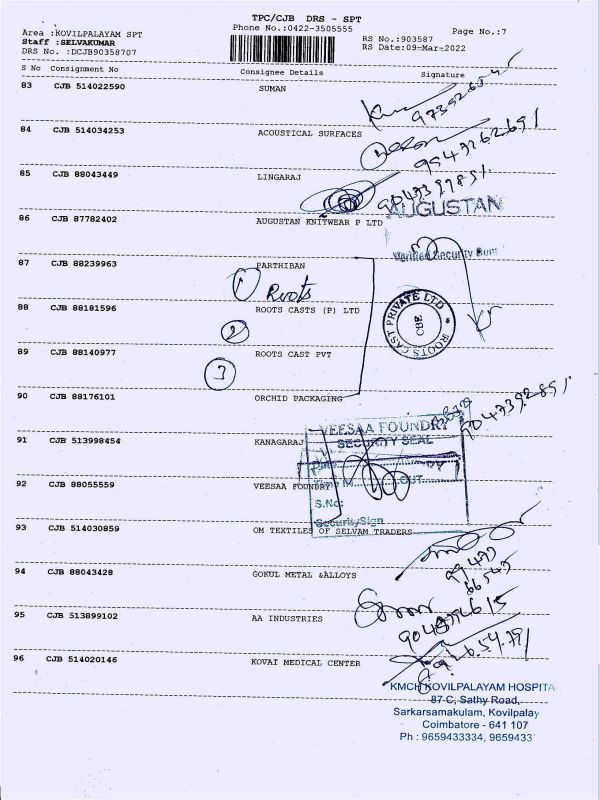 TPC/CJB DRS - SPT
Phone No.:0422-3505555
Page No.:7
Area :KOVILPALAYAM SPT
Staff :SELVAKUMAR
DRS No. :DCJB90358707
RS No.:903587
RS Date:09-Mar-2022
S No Consignment No Consignee Details Signature
83 CJB 514022590 SUMAN
84 CJB 514034253 ACOUSTICAL SURFACES
85 CJB 88043449 LINGARAJ
AUGUSTAN
86 CJB 87782402 AUGUSTAN KNITWEAR P LTD
87 CJB 88239963 PARTHIBAN
1 Roots
88 CJB 88181596 ROOTS CASTS (P) LTD
ROOTS CAST PRIVATE LTD
CBE
2
89 CJB 88140977 ROOTS CAST PVT
3
90 CJB 88176101 ORCHID PACKAGING
VEESAA FOUNDRY
SECURITY SEAL
91 CJB 513998454 KANAGARAJ
92 CJB 88055559 VEESAA FOUNDRY
OUT
S.No:
Security Sign
93 CJB 514030859 OM TEXTILES OF SELVAM TRADERS
94 CJB 88043428 GOKUL METAL &ALLOYS
95 CJB 513899102 AA INDUSTRIES
96 CJB 514020146 KOVAI MEDICAL CENTER
KMCH KOVILPALAYAM HOSPITA
87-C, Sathy Road,
Sarkarsamakulam, Kovilpalay
Coimbatore - 641 107
Ph : 9659433334, 9659433